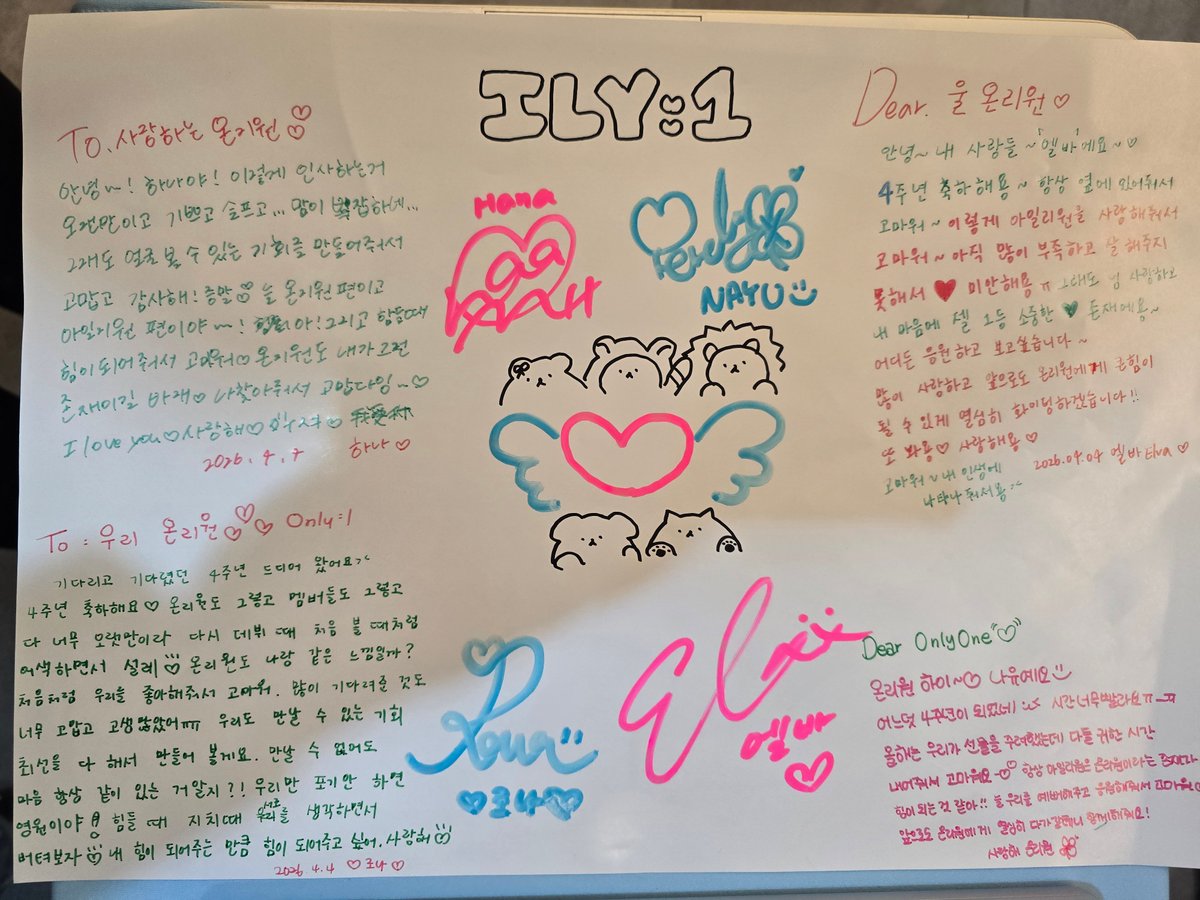 ILY:1
To. 사랑하는 온리원♡♡
안녕~! 하나야! 이렇게 인사하는거
오랜만이고 기쁘고 슬프고... 맘이 복잡하네...
그래도 얼굴 볼 수 있는 기회를 만들어줘서
고맙고 감사해! 정말♡ 늘 온리원 편이고
아일리원 편이야~! 그리고 힘들때
힘이 되어 줘서 고마워♡ 온리원도 내가 그런
존재이길 바래♡ 나 찾아줘서 고맙다잉~♡
I love you♡ 사랑해♡
2026. 4. 7 하나 ♡
Hana
NAYU
Dear. 울 온리원♡
안녕~ 내 사랑들~ '엘바'에요~♡
4주년 축하해용~ 항상 옆에 있어줘서
고마워~ 이렇게 아일리원을 사랑해줘서
고마워~ 아직 많이 부족하고 잘 해주지
못해서 ♥ 미안해용ㅠ 그래도 넘 사랑하고
내 마음에 젤 1등 소중한 ♥ 존재에용~
어디든 응원하고 보고싶습니다~
많이 사랑하고 앞으로도 온리원에게 큰힘이
될 수 있게 열심히 화이팅하겠습니다!!
또 봐용♡ 사랑해용♡
고마워~ 내 인생에
나타나 줘서용^^
2026.04.04 엘바 Elva ♡
To : 우리 온리원♡♡♡ Only:1
기다리고 기다렸던 4주년 드디어 왔어요^^
4주년 축하해요♡ 온리원도 그렇고 멤버들도 그렇고
다 너무 오랫만이라 다시 데뷔 때 처음 볼 때처럼
어색하면서 설레 온리원도 나랑 같은 느낌일까?
처음처럼 우리를 좋아해주셔서 고마워. 많이 기다려준 것도
너무 고맙고 고생 많았어ㅠㅠ 우리도 만날 수 있는 기회
최선을 다 해서 만들어 볼게요. 만날 수 없어도
마음 항상 같이 있는 거 알지?! 우리만 포기 안 하면
영원이야 힘들 때 지치때 서로를 생각하면서
버텨보자 내 힘이 되어주는 만큼 힘이 되어주고 싶어. 사랑해
2026. 4. 4 ♡ 로나 ♡
Rona
♡로나♡
Elva
엘바
♡
Dear OnlyOne "♡"
온리원 하이~♡ 나유에요
어느덧 4주년이 되었네! 시간 너무 빨라요ㅠㅡㅠ
올해는 우리가 선물을 꾸려했는데 다들 귀한 시간
내어줘서 고마워요~♡ 항상 아일리원은 온리원이라는 존재가
힘이 되는 것 같아!! 늘 우리를 예뻐해주고 응원해줘서 고마워♡
앞으로도 온리원에게 열심히 다가갈테니 함께해줘요!
사랑해 온리원